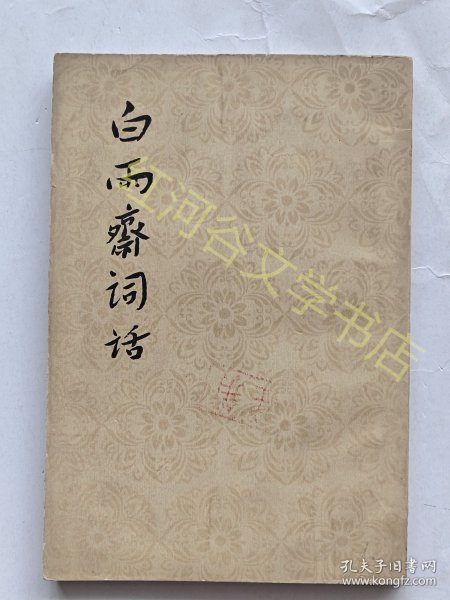 白雨齋词话
红河谷文学书店
孔夫子旧书网
www.kongfz.com